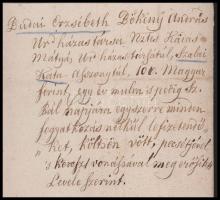 Budai Erzsébeth Dökény András
Ur házastársa Nettő Kávási
Mátyás Ur házastársjától, Szalai
Kata Asszonytul, 100. Magyar
forint, egy év mulva is pedig Sz.
Bál napjára egyszerre minden
fogyatkozás nélkül lefizetendő
ket, költsön vött, pecsétjével
's kereszt vonásával meg erősített
Levele szerint.